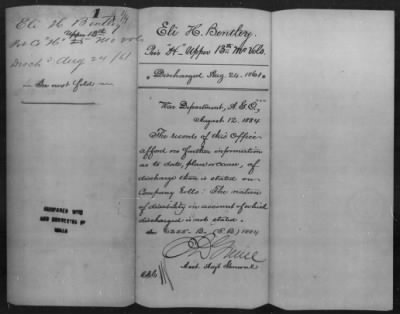 Eli H. Bentley
Pvt Co "H" Upper 13th Mo Vols
Disch'd Aug 24/61
Do not fold
COMPARED WITH
AND CORRECTED BY
ROLLS
Eli H. Bentley.
Co. "H" Upper 13th Mo Vols.
Discharged Aug. 24. 1861.
War Department, A.G.O.,
August 12, 1884
The records of this Office
afford no further information
as to date, place or cause, of
discharge than is stated on
Company Rolls: The nature
of disability on account of which
discharged is not stated.
(E.B.) 1884
Asst. Adjt. General.